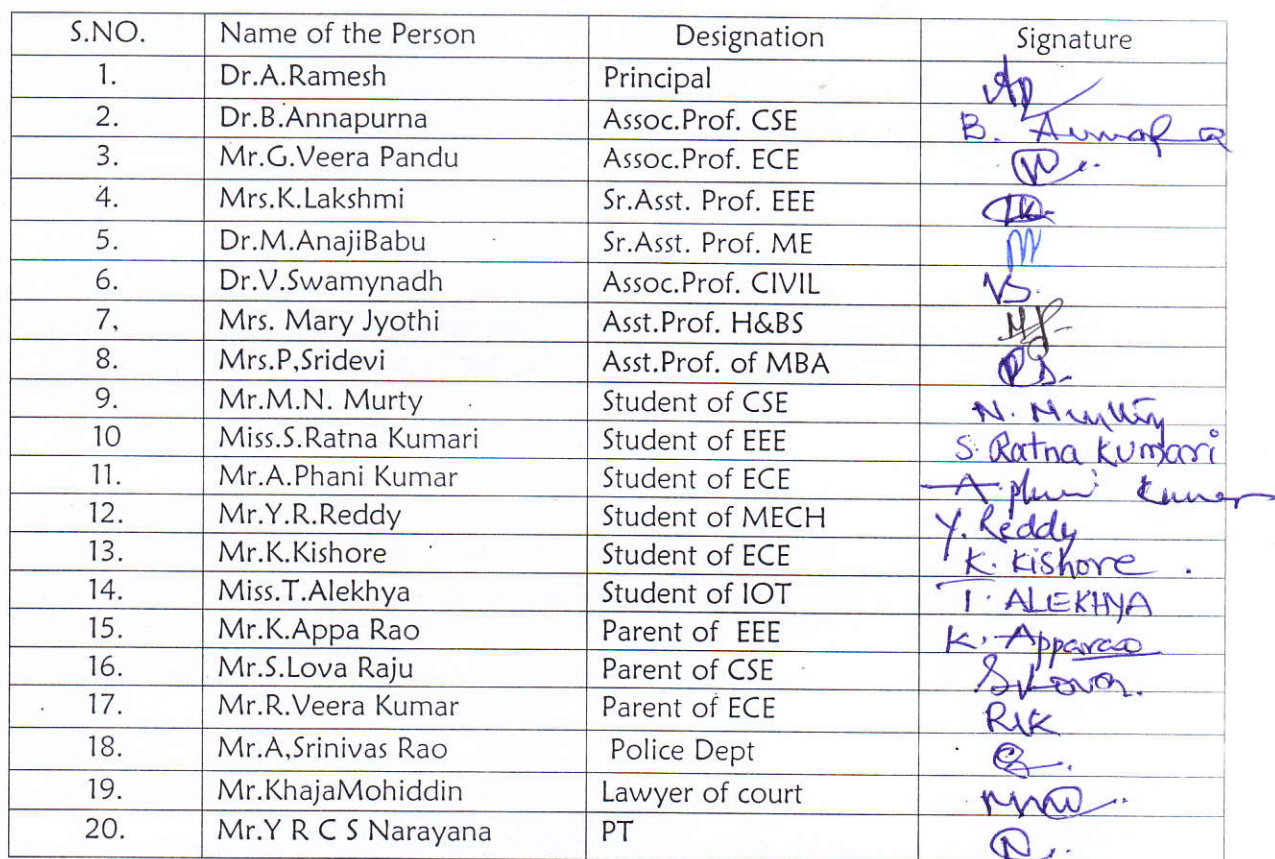 S.NO. Name of the Person Designation Signature
1. Dr.A.Ramesh Principal
2. Dr.B.Annapurna Assoc.Prof. CSE B.
3. Mr.G.Veera Pandu Assoc.Prof. ECE
4. Mrs.K.Lakshmi Sr.Asst. Prof. EEE
5. Dr.M.AnajiBabu Sr.Asst. Prof. ME
6. Dr.V.Swamynadh Assoc.Prof. CIVIL VS.
7, Mrs. Mary Jyothi Asst.Prof. H&BS
8. Mrs.P,Sridevi Asst.Prof. of MBA
9. Mr.M.N. Murty Student of CSE
10 Miss.S.Ratna Kumari Student of EEE S. Ratna Kumari
11. Mr.A.Phani Kumar Student of ECE
12. Mr.Y.R.Reddy Student of MECH Y. Reddy
13. Mr.K.Kishore Student of ECE K. Kishore.
14. Miss.T.Alekhya Student of IOT T. ALEKHYA
15. Mr.K.Appa Rao Parent of EEE K. Apparao
16. Mr.S.Lova Raju Parent of CSE
17. Mr.R.Veera Kumar Parent of ECE RVK
18. Mr.A,Srinivas Rao Police Dept
19. Mr.KhajaMohiddin Lawyer of court
20. Mr.Y R C S Narayana PT